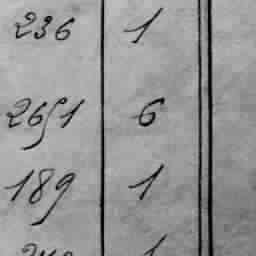 236 1
2651 6
189 1
1